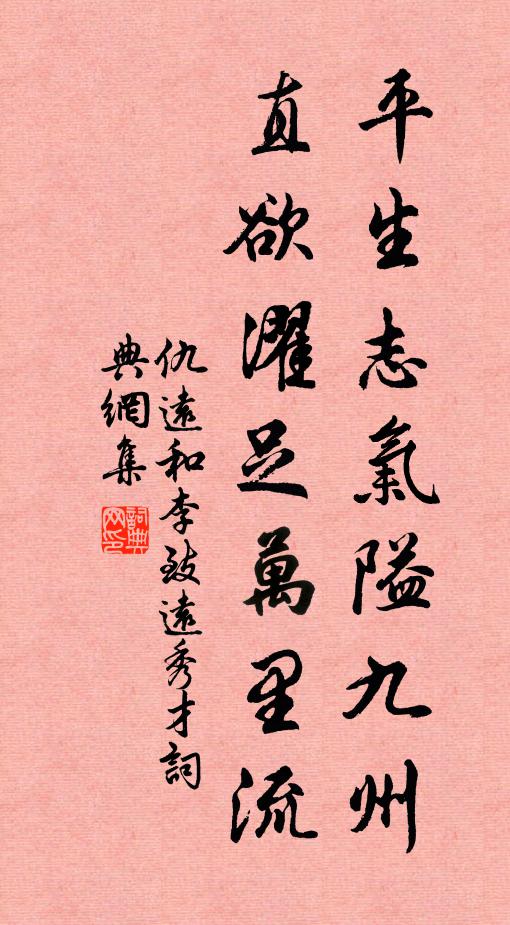 平生志氣隘九州
直欲濯足萬里流
仇遠和李致遠秀才詞
典網集
詞典網印